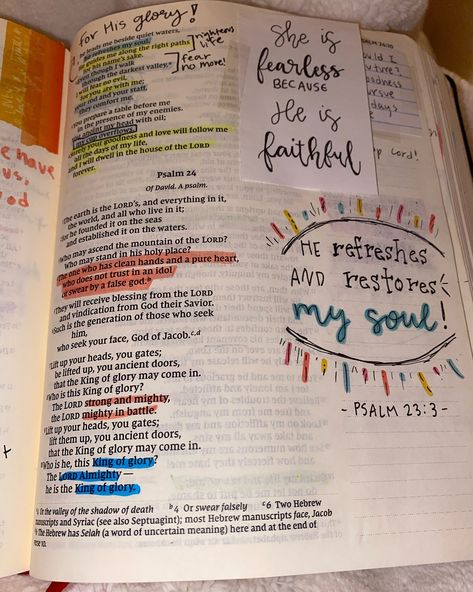 for His glory!
he leads me beside quiet waters,
he refreshes my soul.
He guides me along the right paths
for his name's sake.
Even though I walk
through the darkest valley,
I will fear no evil,
for you are with me;
your rod and your staff,
they comfort me.
righteous
life
fear
no more!
You prepare a table before me
in the presence of my enemies.
You anoint my head with oil;
my cup overflows.
Surely your goodness and love will follow me
all the days of my life,
and I will dwell in the house of the LORD
forever.
Psalm 24
Of David. A psalm.
The earth is the LORD's, and everything in it,
the world, and all who live in it;
for he founded it on the seas
and established it on the waters.
Who may ascend the mountain of the LORD?
Who may stand in his holy place?
The one who has clean hands and a pure heart,
who does not trust in an idol
or swear by a false god.b
They will receive blessing from the LORD
and vindication from God their Savior.
Such is the generation of those who seek
him,
who seek your face, God of Jacob.c,d
Lift up your heads, you gates;
be lifted up, you ancient doors,
that the King of glory may come in.
Who is this King of glory?
The LORD strong and mighty,
the LORD mighty in battle.
Lift up your heads, you gates;
lift them up, you ancient doors,
that the King of glory may come in.
Who is he, this King of glory?
The LORD Almighty—
he is the King of glory.
in the valley of the shadow of death b4 Or swear falsely c6 Two Hebrew
manuscripts and Syriac (see also Septuagint); most Hebrew manuscripts face, Jacob
The Hebrew has Selah (a word of uncertain meaning) here and at the end of
verse 10.
She is
fearless
BECAUSE
He is
faithful
HE refreshes
AND restores
my soul!
- PSALM 23:3 -
Lord!
days